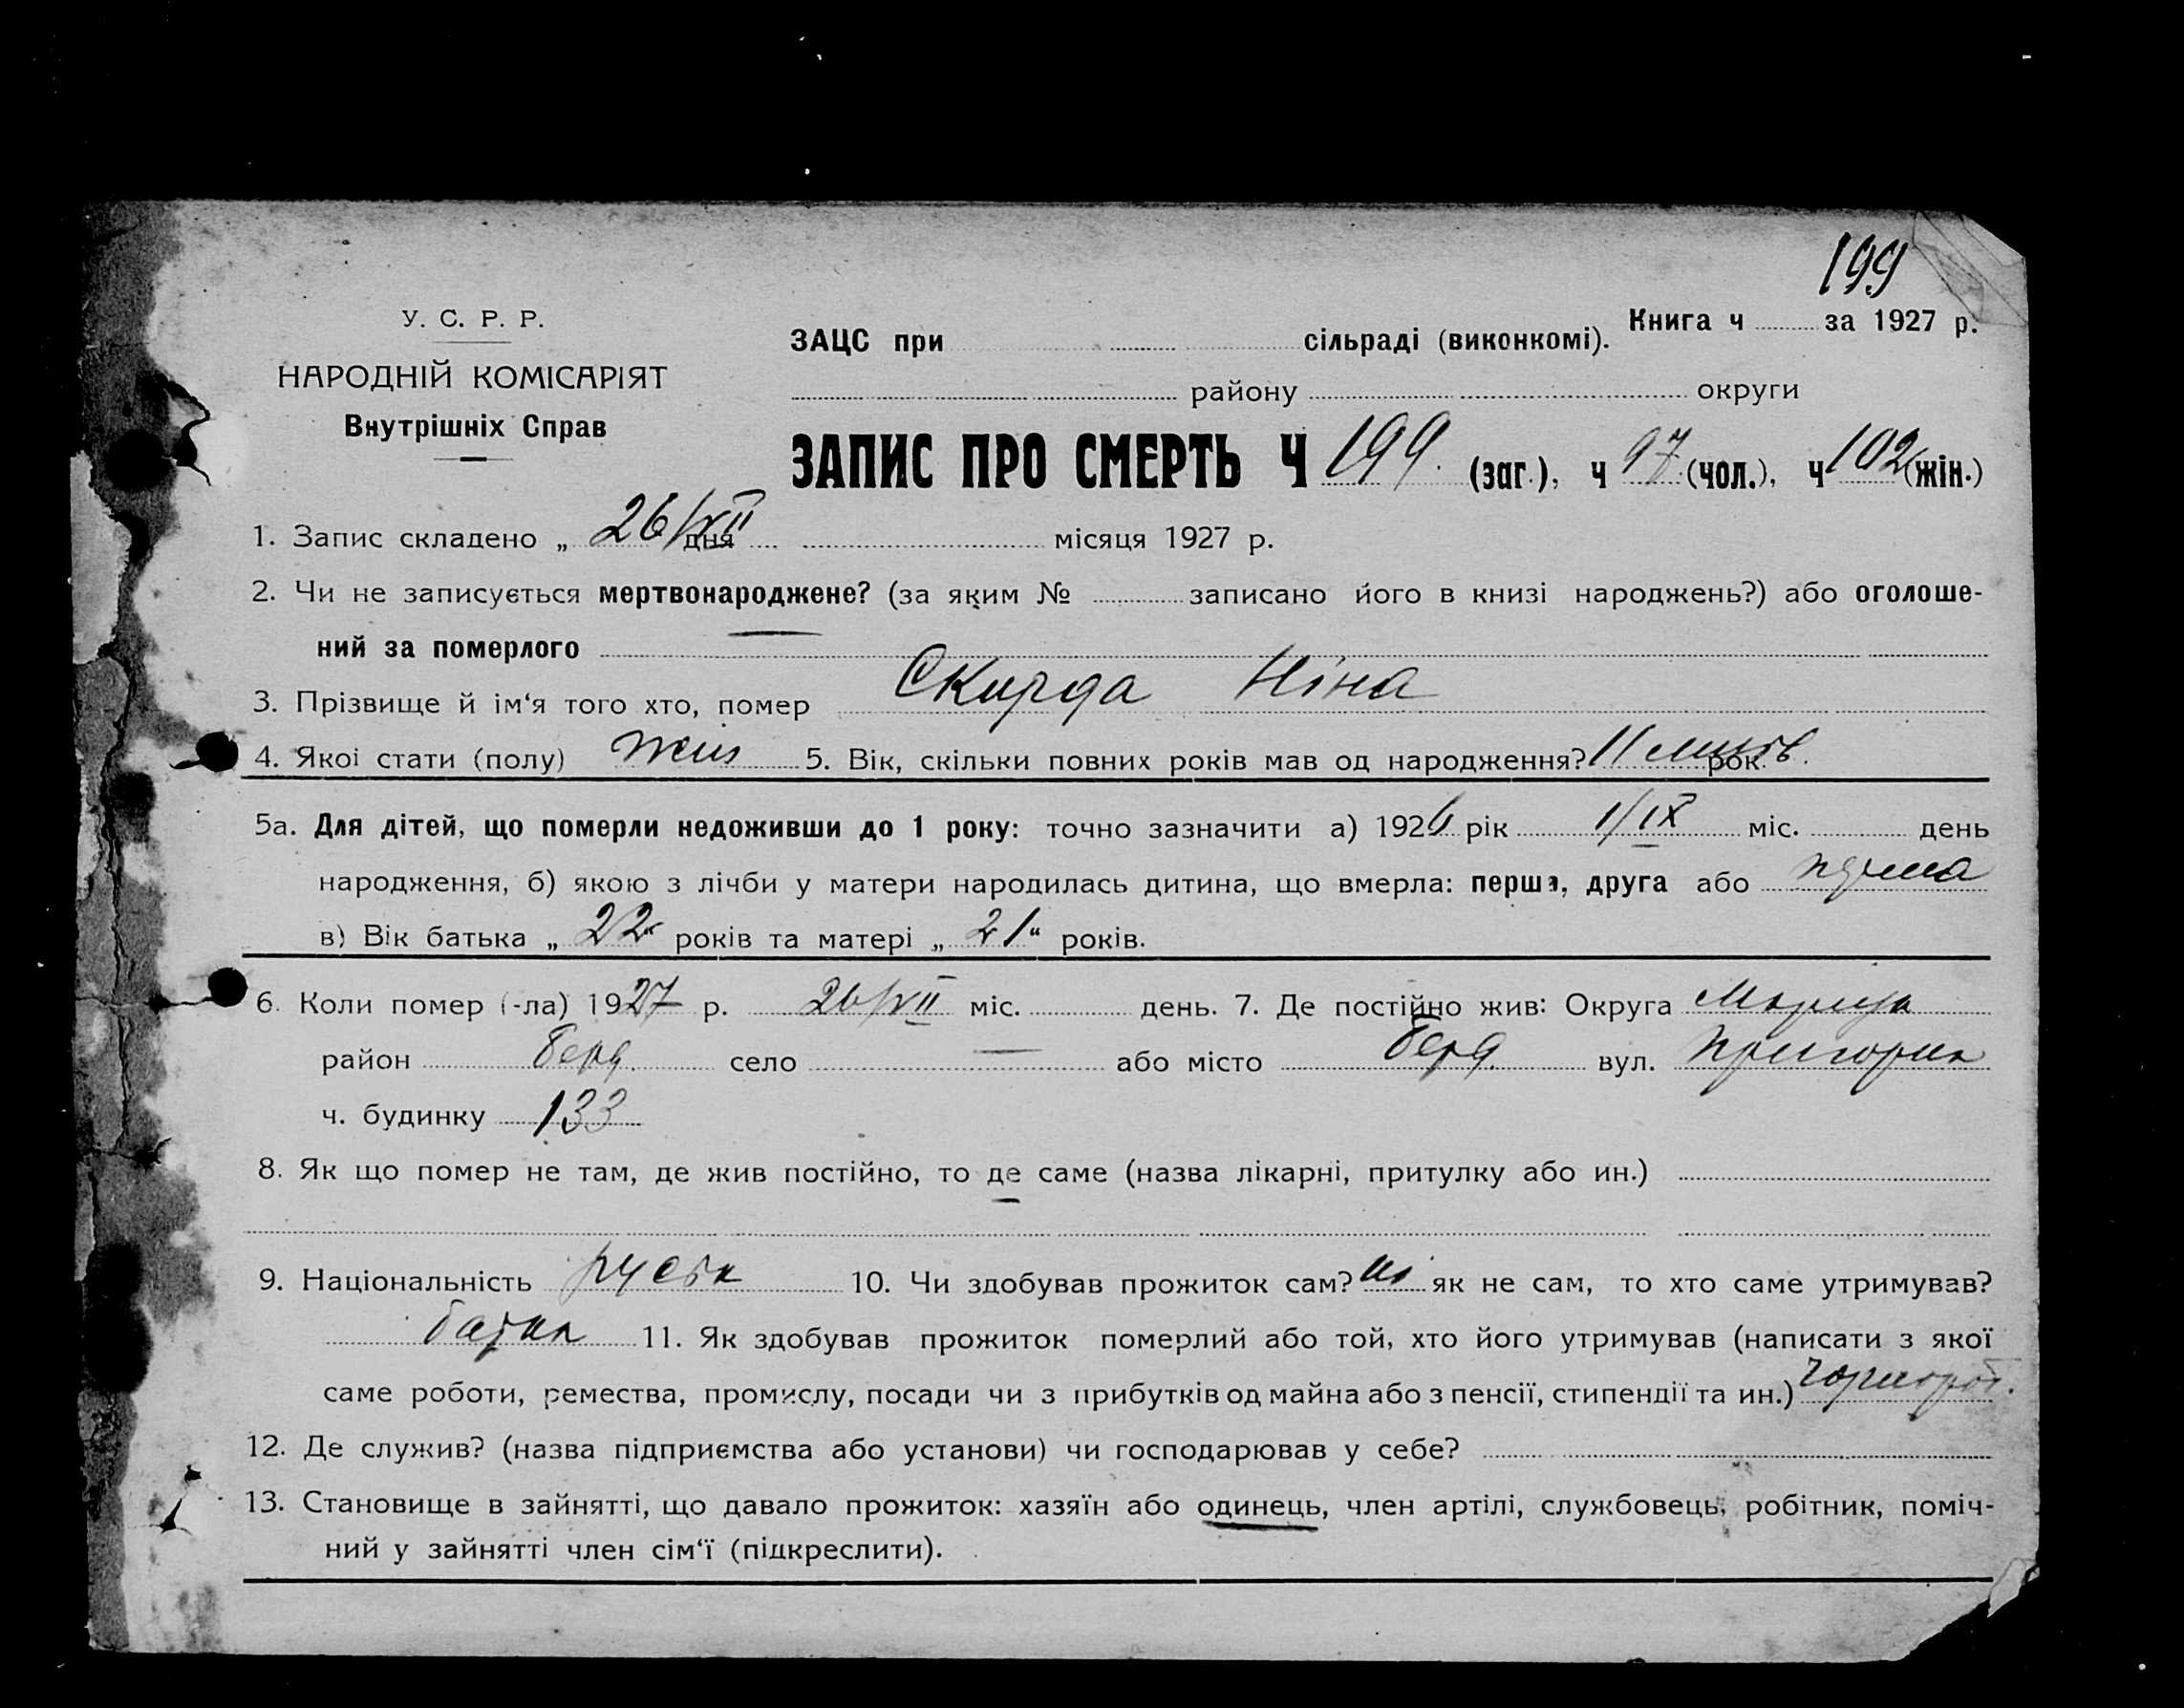 199
У. С. Р. Р.
НАРОДНІЙ КОМІСАРІЯТ
Внутрішніх Справ
Книга ч за 1927 р.
ЗАЦС при сільраді (виконкомі).
району округи
ЗАПИС ПРО СМЕРТЬ Ч 199. (заг.), ч 97 (чол.), ч 102 (жін.)
1. Запис складено „ 26/VII дня місяця 1927 р.
2. Чи не записується мертвонароджене? (за яким № записано його в книзі народжень?) або оголоше-
ний за померлого —
3. Прізвище й ім‘я того хто, помер Скирда Ніна
4. Якої стати (полу) жін 5. Вік, скільки повних років мав од народження? 11 рок.
5а. Для дітей, що померли недоживши до 1 року: точно зазначити а) 1926 рік 1/IX міс. день
народження, б) якою з лічби у матери народилась дитина, що вмерла: перша, друга або перша
в) Вік батька „ 22 “ років та матері „ 21 “ років.
6. Коли помер (-ла) 1927 р. 26/VII міс. день. 7. Де постійно жив: Округа
район Берд. село — або місто Берд. вул.
ч. будинку 133
8. Як що помер не там, де жив постійно, то де саме (назва лікарні, притулку або ин.)
—
9. Національність 10. Чи здобував прожиток сам? ні як не сам, то хто саме утримував?
11. Як здобував прожиток померлий або той, хто його утримував (написати з якої
саме роботи, ремества, промислу, посади чи з прибутків од майна або з пенсії, стипендії та ин.) чорнороб.
12. Де служив? (назва підприємства або установи) чи господарював у себе?
13. Становище в зайнятті, що давало прожиток: хазяїн або одинець, член артілі, службовець, робітник, поміч-
ний у зайнятті член сім‘ї (підкреслити).